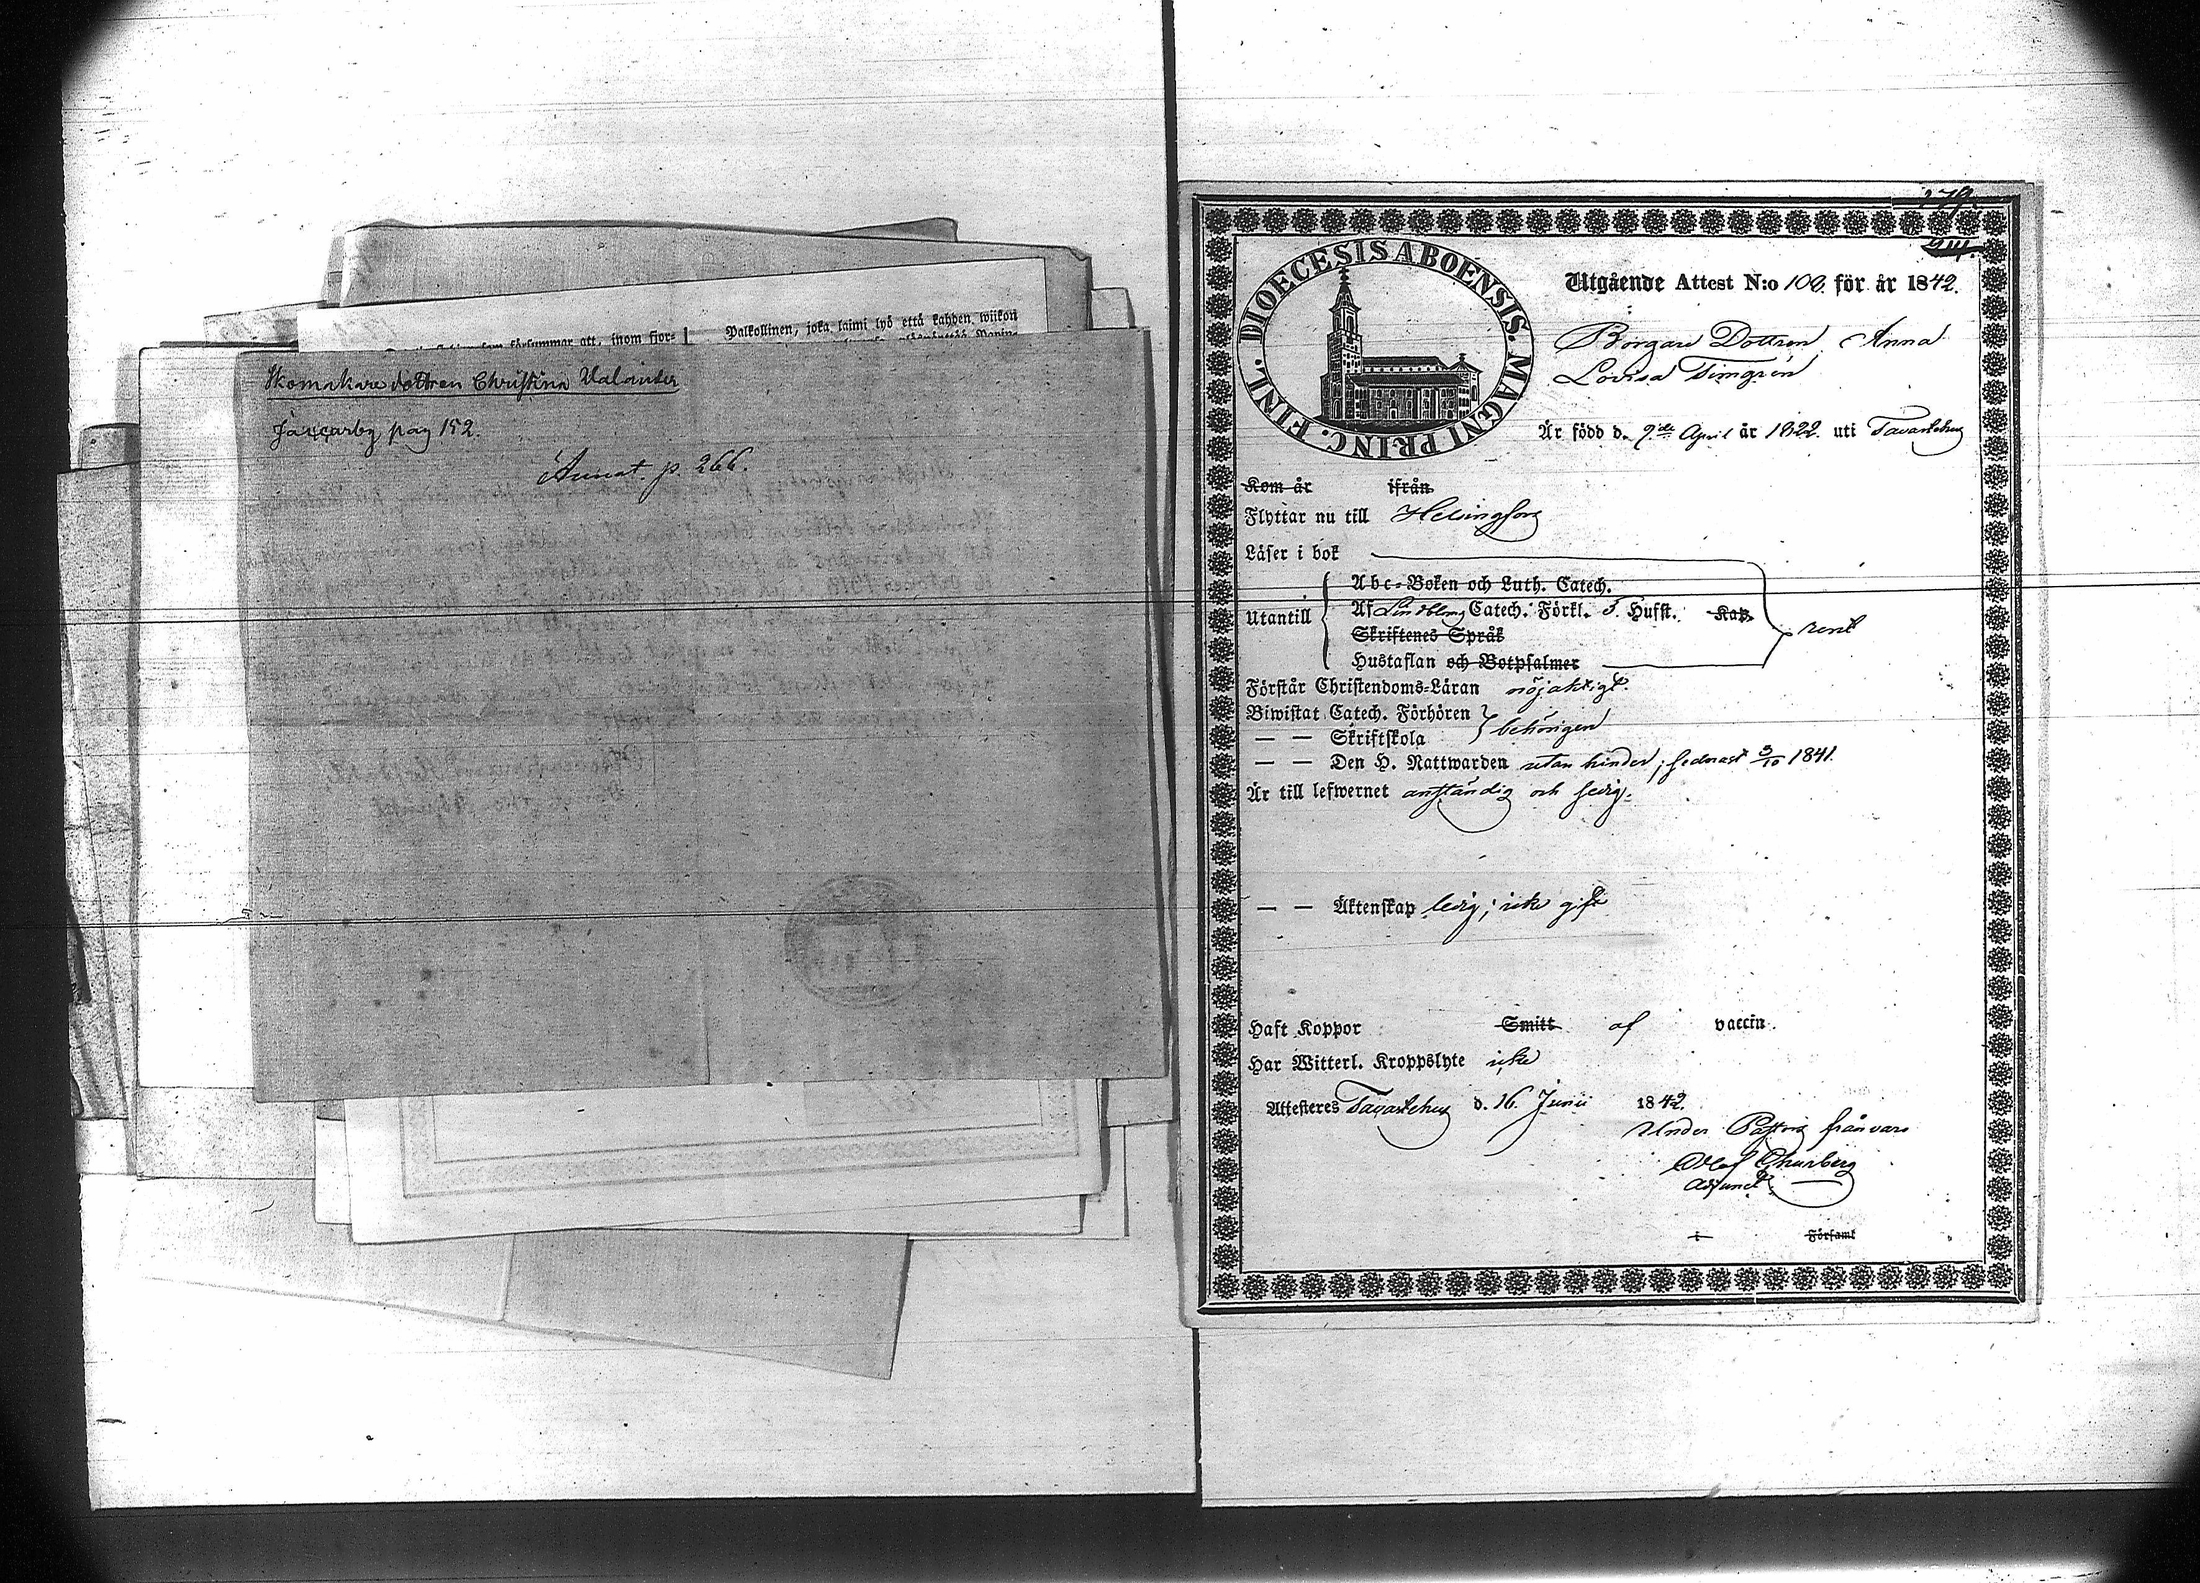 försummar att, inom fjor-
Palkollinen, joka laimi lyö että kahden wiikon
Skomakare dottren Christina Valander
pag 152.
Annat. p. 266.
279.
DIOECESIS ABOENSIS. MAGNI PRINC. FINL.
Utgående Attest N:o 100. för år 1842.
Borgare Dottren Anna
Lovisa Timgrén
Är född d. 9de April år 1822. uti Tavastehus
Kom år ifrån
Flyttar nu till Helsingfors
Läser i bok
Abc-Boken och Luth. Catech.
Utantill Af Lindbloms Catech. Förkl. 5. Hufst. Kap. rent
Skriftenes Språk
Hustaflan och Botpsalmer
Förstår Christendoms-Läran nöjaktigt.
Biwistat Catech. Förhören
— — Skriftskola behörigen
— — Den H. Nattwarden utan hinder, sednast 3/10 1841.
Är till lefwernet anständig och sedig.
— — Äktenskap ledig; icke gift
Haft Koppor Smitt af vaccin.
Har Witterl. Kroppslyte icke
Attesteres Tavastehus d. 16. Junii 1842.
Under Pastors frånvaro
Olof Churberg
Adjunct.
i Församl